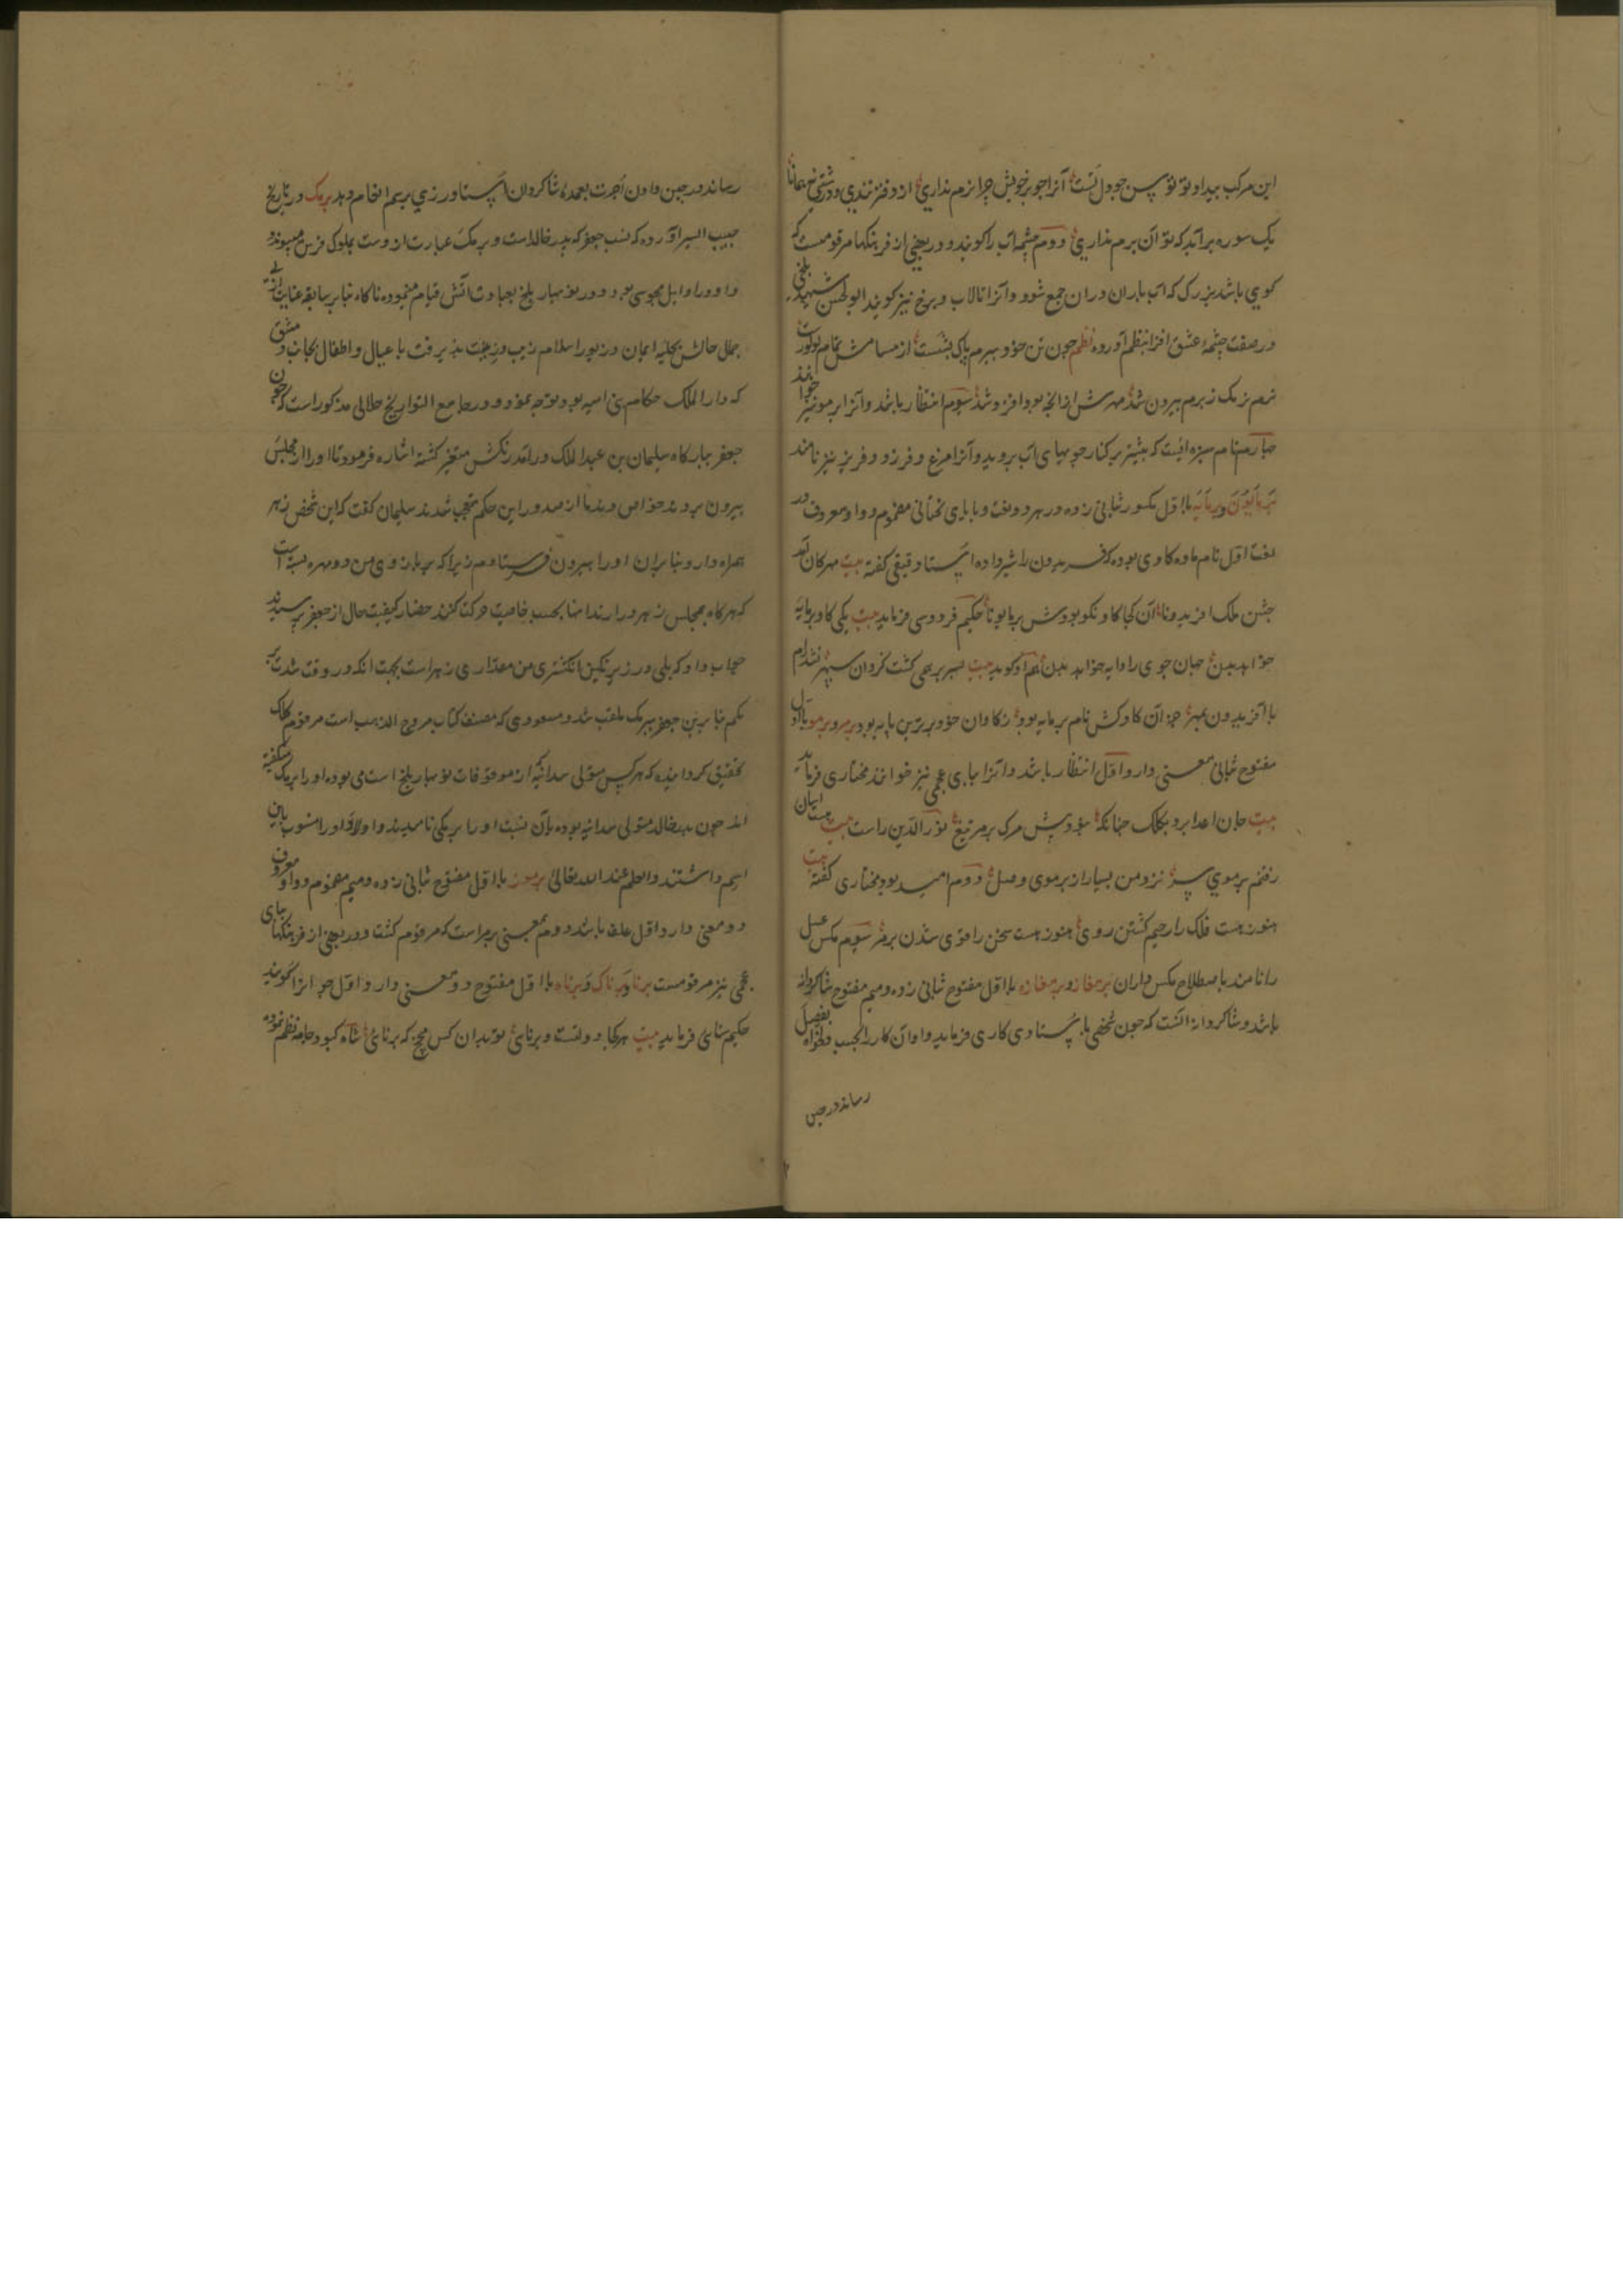 این مرکب بیداد تو پس چو دل تست آنرا جو خویش چرا نرم نداری از دفتر تندی و درشتی همانا
یک سوره برآید که تو آن برم نداری دوم چشمه آب را گویند و در بعضی از فرهنگها مرقومست که
کوی باشد بزرک که آب باران در آن جمع شود و آنرا تالاب و برخ نیز گویند ابوالحسن شهید بلخی
در صفت چشمه عشق افزا بنظم آورده نظم چون تن خود ببرم پاک بشست از مسامش تمام لولو رست
نرم نرمک ز برم بیرون شد مهرش از آنچه بود افزون شد سیوم انتظار باشد و آنرا برمو نیز خوانند
چهارم نام سبزه ایست که بیشتر بر کنار جویهای آب بروید و آنرا مرغ و فرزد و فریز نیز نامند
برمایون و برمایه با اول مکسور بثانی زده در هر دو لغت و با یای تحتانی مضموم و واو معروف در
لغت اول نام ماده کاوی بوده که فریدون را شیر داده استاد دقیقی گفته بیت مهرکان آمد
جشن ملک افریدونا آن کجا کاو نکو بودش برمایونا حکیم فردوسی فرماید بیت یکی کاو برمایه
خواهد بدن جهان جوی را دایه خواهد بدن هم او گوید بیت بسر بر همی گشت گردان سپهر شد رام
با افریدون بمهر همان کاو کش نام برمایه بود ز کاوان خود برترین پایه بود برمر و برمو با اول
مفتوح بثانی معنی دارد اول انتظار باشد و آنرا ببای عجمی نیز خوانند مختاری فرماید
بیت جان اعدا برد بکلک چنانکه بودش مرک بر مر تیغ نورالدین راست بیت
رفتم برموی نزد من بسیار از برموی وصل دوم امید بود مختاری گفته بیت
هنوز هست فلک را رحیم گشتن روی هنوز هست سخن را قوی شدن برمر سیوم مکس عسل
را نامند باصطلاح مکس داران برمغاز و برمغازه با اول مفتوح ثانی زده و میم مفتوح شاکردانه
باشد و شاکردانه آنست که چون شخصی باستادی کاری فرماید و او آن کار را بحسب دلخواه بفصیل
رساند در حین
رساند در حین دادن اجرت بعمده شاکردان استاد زری برسم انعام دهد برمک در تاریخ
حبیب السیر آورده که نسب جعفر که پدر خالد است و برمک عبارت از وست بملوک فرس میپیوندد
و او در اوایل مجوسی بود و در نوبهار بلخ بعبادت آتش قیام مینموده ناکاه بنا بر سابقه عنایت ازلی
جمال حالش بحلیه ایمان و زیور اسلام زیب و زینت پذیرفت با عیال و اطفال بجانب دمشق
که دار الملک حکام بنی امیه بود توجه نمود و در جامع التواریخ جلالی مذکور است که چون
جعفر ببارکاه سلیمان بن عبد الملک درآمد رنکش متغیر گشته اشاره فرمود تا او را از مجلس
بیرون بردند خواص و ندما از صدور این حکم متعجب شدند سلیمان گفت که این شخص زهر
همراه دارد بنابران او را بیرون فرستادم زیرا که بر بازوی من دو مهره بسته است
که هرکاه بمجلس زهر درارند انها بحسب خاصیت حرکت کنند حضار کیفیت حال از جعفر پرسیدند
جواب داد که بلی در زیر نکین انکشتری من مقداری زهر است بجهت انکه در وقت شدت
بمکم بنابرین جعفر ببرمک ملقب شد و مسعودی که مصنف کتاب مروج الذهب است مرقوم کلک
تحقیق گردانیده که هرکس متولی سدانه از موقوفات نوبهار بلخ است می بوده او را برمک میگفته
اند چون پدر خالد متولی سدانه بوده بآن نسبت او را برمکی نامیدند و اولاد او را منسوب باین
اسم داشتند والعلم عند الله تعالی برمون با اول مفتوح ثانی زده و میم مضموم و واو معروف
دو معنی دارد اول باشد دوم بمعنی برمر است که مرقوم گشت و در بعضی از فرهنگها ببای
عجمی نیز مرقومست برنا و برناک و برناه با اول مفتوح دو معنی دارد اول جوان را گویند
حکیم سنائی فرماید بیت هرکجا دولت و برنائی تو بدان کس مچخ که برنائی شاه کبود جامه نظم نموده